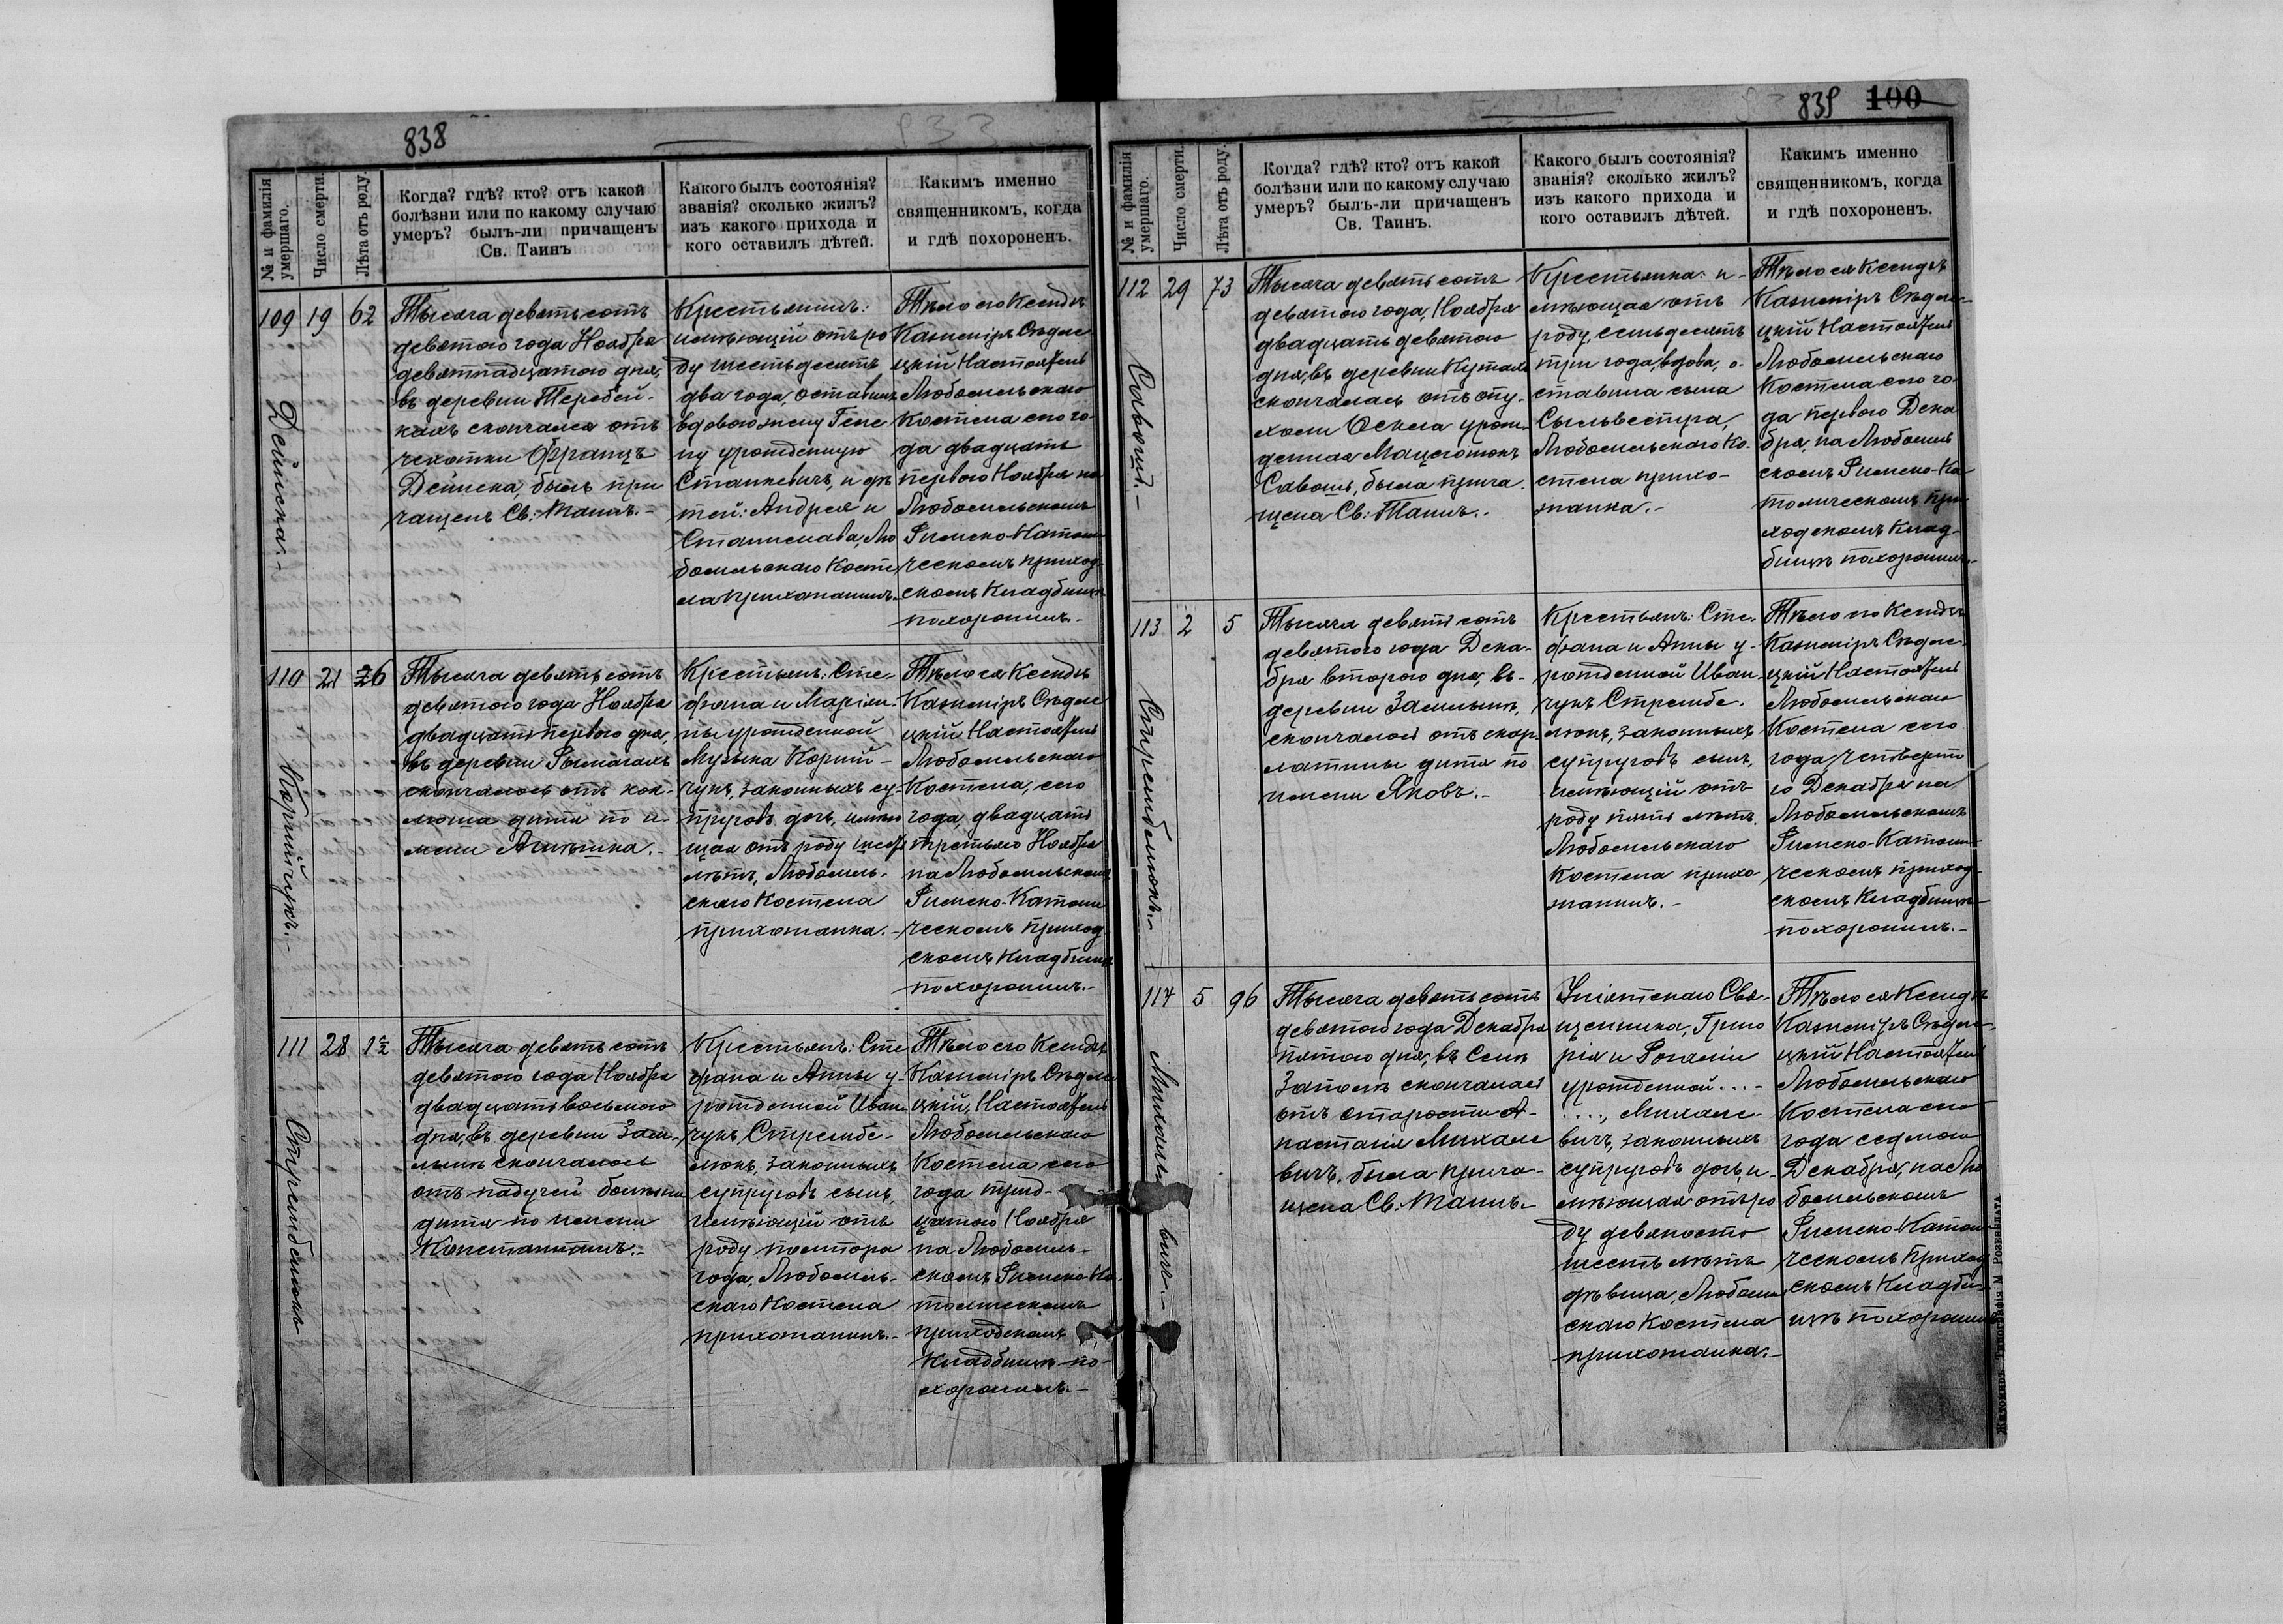 838
№ и фамилія умершаго.
Число смерти.
Лѣта отъ роду.
Когда? гдѣ? кто? отъ какой
болѣзни или по какому случаю
умеръ? былъ-ли причащенъ
Св. Таинъ
Какого былъ состоянія?
званія? сколько жилъ?
изъ какого прихода и
кого оставилъ дѣтей.
Какимъ именно
священникомъ, когда
и гдѣ похороненъ.
109
19
62
Дейнека.-
Тысяча девятьсотъ
девятого года Ноября
девятнадцатого дня,
въ деревни Теребей-
кахъ скончался отъ
чехотки Францъ
Дейнека, былъ при
чащенъ Св: Таинъ.-
Крестьянинъ:
имѣющій отъ ро
ду шестьдесятъ
два года, оставилъ
вдовою жену Геле
ну урожденную
Станкевичъ, и дѣ
тей: Андрея и
Станислава, Лю
бомльскаго Косте
ла прихожанинъ.-
Тѣло его Ксендзъ
Казиміръ Сѣдле
цкій Настоятель
Любомльскаго
Костела сего го-
да двадцать
первого Ноября на
Любомльскомъ
Римско-Католи
ческомъ приход-
скомъ Кладбищѣ
похоронилъ.-
110
21
26
Корнійчукъ.-
Тысяча девятьсотъ
девятого года Ноября
двадцать первого дня,
въ деревни Рымачахъ
скончалось отъ кок-
люша дитя по и-
мени Агнѣшка.-
Крестьянъ: Сте-
фана и Маріан-
ны урожденной
Музыка Корній-
чукъ, законныхъ су-
пруговъ дочь, имѣю
щая отъ роду шесть
лѣтъ, Любомль-
скаго Костела
прихожанка.-
Тѣло ея Ксендзъ
Казиміръ Сѣдле
цкій Настоятель
Любомльскаго
Костела, сего
года, двадцать
третьяго Ноября
на Любомльскомъ
Римско-Католи
ческомъ приход
скомъ Кладбищѣ
похоронилъ.-
111
28
1½
Стрембелюкъ
Тысяча девятьсотъ
девятого года Ноября
двадцать восьмого
дня, въ деревни Зам-
лынѣ скончалось
отъ падучей болѣзни
дитя по имени
Константинъ.-
Крестьянъ: Сте
фана и Анны у-
рожденной Иван-
чукъ, Стрембе-
люкъ, законныхъ
супруговъ сынъ,
имѣющій отъ
роду полтора
года, Любомль-
скаго Костела
прихожанинъ.-
Тѣло его Ксендзъ
Казиміръ Сѣдле
цкій, Настоятель
Любомльскаго
Костела сего
года трид-
цатого Ноября
на Любомль-
скомъ Римско-Ка-
толическомъ
приходскомъ
Кладбищѣ по-
хоронилъ.-
839 100
№ и фамилія умершаго.
Число смерти.
Лѣта отъ роду.
Когда? гдѣ? кто? отъ какой
болѣзни или по какому случаю
умеръ? былъ-ли причащенъ
Св. Таинъ.
Какого былъ состоянія?
званія? сколько жилъ?
изъ какого прихода и
кого оставилъ дѣтей.
Какимъ именно
священникомъ, когда
и гдѣ похороненъ.
112
29
73
Савошъ.-
Тысяча девятьсотъ
девятого года, Ноября
двадцать девятого
дня, въ деревни
скончалась отъ опу-
холи урож-
денная
Савошъ, была прича-
щена Св: Таинъ.-
Крестьянка: и-
мѣющая отъ
роду, семьдесятъ
три года, вдова, о-
ставила сына
Сыльвестра,
Любомльскаго Ко-
стела прихо-
жанка.-
Тѣло ея Ксендзъ
Казиміръ Сѣдле-
цкій Настоятель
Любомльскаго
Костела сего го-
да первого Дека
бря, на Любомль
скомъ Римско-Ка
толическомъ при
ходскомъ Клад-
бищѣ похоронилъ.-
113
2
5
Стрембелюкъ.-
Тысяча девятьсотъ
девятого года Дека-
бря второго дня, въ-
деревни Замлынѣ,
скончалось отъ скар-
латины дитя по
имени Яковъ.-
Крестьянъ: Сте-
фана и Анны у-
рожденной Иван-
чукъ Стрембе-
люкъ, законныхъ
супруговъ сынъ,
имѣющій отъ
роду пять лѣтъ.
Любомльскаго
Костела прихо
жанинъ.-
Тѣло его Ксендзъ
Казиміръ Сѣдле-
цкій Настоятель
Любомльскаго
Костела сего
года, четверто
го Декабря на
Любомльскомъ
Римско-Католи-
ческомъ приход-
скомъ Кладбищѣ
похоронилъ.-
114
5
96
Михалевичъ.-
Тысяча девятьсотъ
девятого года Декабря
пятого дня, въ Селѣ
скончалась
отъ старости А-
настазія Михале
вичъ, была прича-
щена Св: Таинъ.-
Уніятскаго Свя-
щенника, Григо
рія и Розаліи
урожденной...-
...., Михале-
вичъ, законныхъ
супруговъ дочь, и-
мѣющая отъ ро
ду девяносто
шесть лѣтъ
дѣвица, Любомль
скаго Костела
прихожанка.-
Тѣло ея Ксендзъ
Казиміръ Сѣдле-
цкій Настоятель
Любомльскаго
Костела сего
года седмого
Декабря, на Лю
бомльскомъ
Римско-Католи
ческомъ приход
скомъ Кладби-
щѣ похоронилъ
Житомиръ. Типографія М. Розенблата.